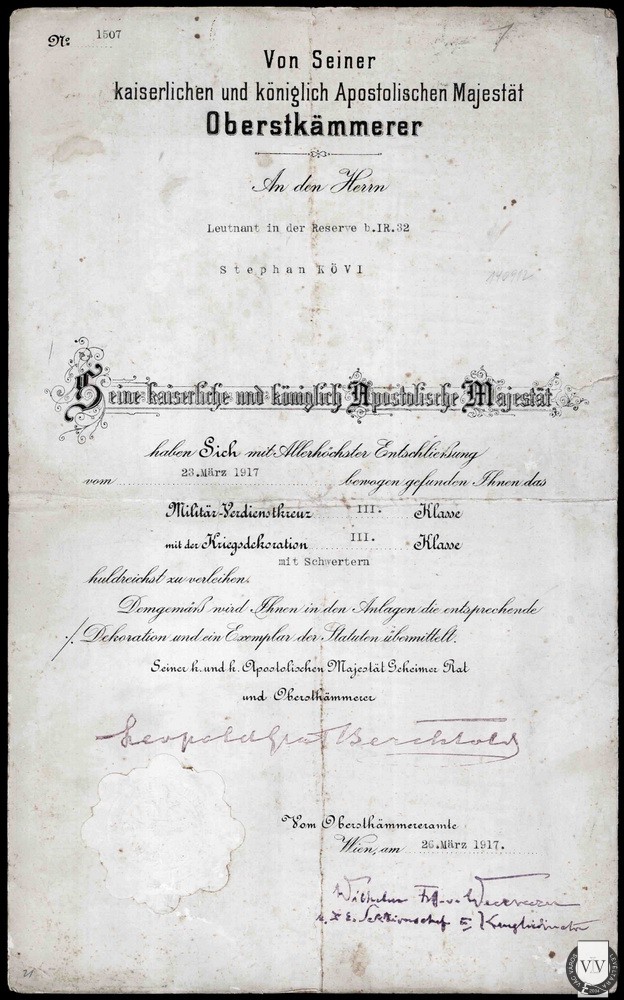 № 1507
Von Seiner
kaiserlichen und königlich Apostolischen Majestät
Oberstkämmerer
An den Herrn
Leutnant in der Reserve b.IR.32
Stephan KÖVI
Seine kaiserliche und königlich Apostolische Majestät
haben Sich mit Allerhöchster Entschließung
vom 23.März 1917 bewogen gefunden Ihnen das
Militär-Verdienstkreuz III. Klasse
mit der Kriegsdekoration III. Klasse
mit Schwertern
huldreichst zu verleihen.
Demgemäß wird Ihnen in den Anlagen die entsprechende
./. Dekoration und ein Exemplar der Statuten übermittelt.
Seiner k. und k. Apostolischen Majestät Geheimer Rat
und Oberstkämmerer
Leopold Graf Berchtold
Vom Oberstkämmereramte
Wien, am 26.März 1917.
Wilhelm Frh. v.